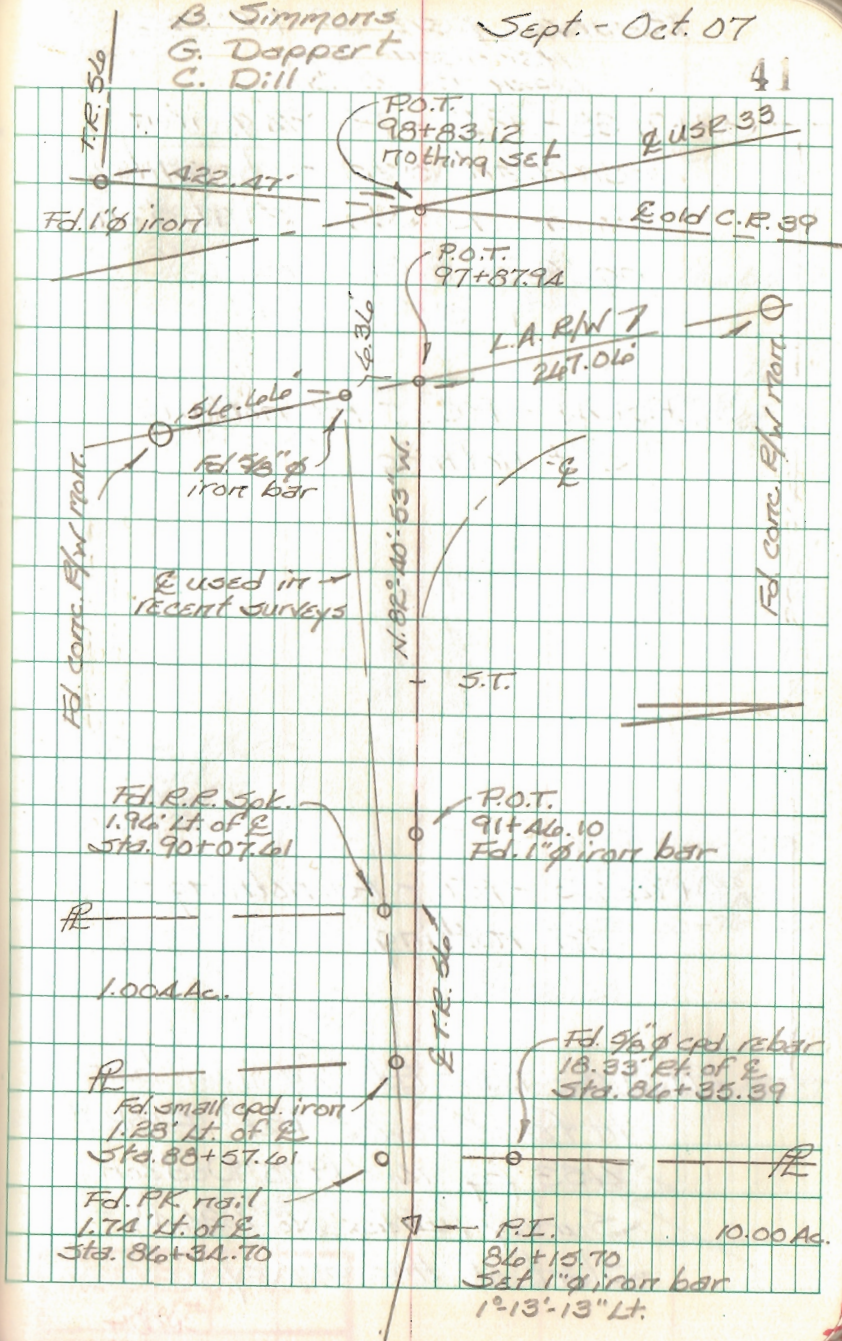 B. Simmons
G. Dappert
C. Dill
Sept. - Oct. 07
41
T.R. 56
P.O.T.
98+83.12
nothing set
℄ USR 33
422.47'
Fd. 1"ø iron
℄ old C.R. 39
P.O.T.
97+87.94
6.36'
L.A. R/W
267.06'
56.66'
Fd. 5/8"ø
iron bar
Fd. conc. R/W Mon.
Fd. conc. R/W Mon.
N. 82°-40'-53" W.
℄
℄ used in
recent surveys
S.T.
Fd. R.R. Spk.
1.96' Lt. of ℄
Sta. 90+07.61
P.O.T.
91+46.10
Fd. 1"ø iron bar
PL
1.004 Ac.
℄ T.R. 56
PL
Fd. small cpd. iron
1.28' Lt. of ℄
Sta. 88+57.61
Fd. 5/8"ø cpd rebar
18.33' Rt. of ℄
Sta. 86+35.39
PL
Fd. PK nail
1.74' Lt. of ℄
Sta. 86+34.70
P.I.
86+15.70
Set 1"ø iron bar
1°-13'-13" Lt.
10.00 Ac.